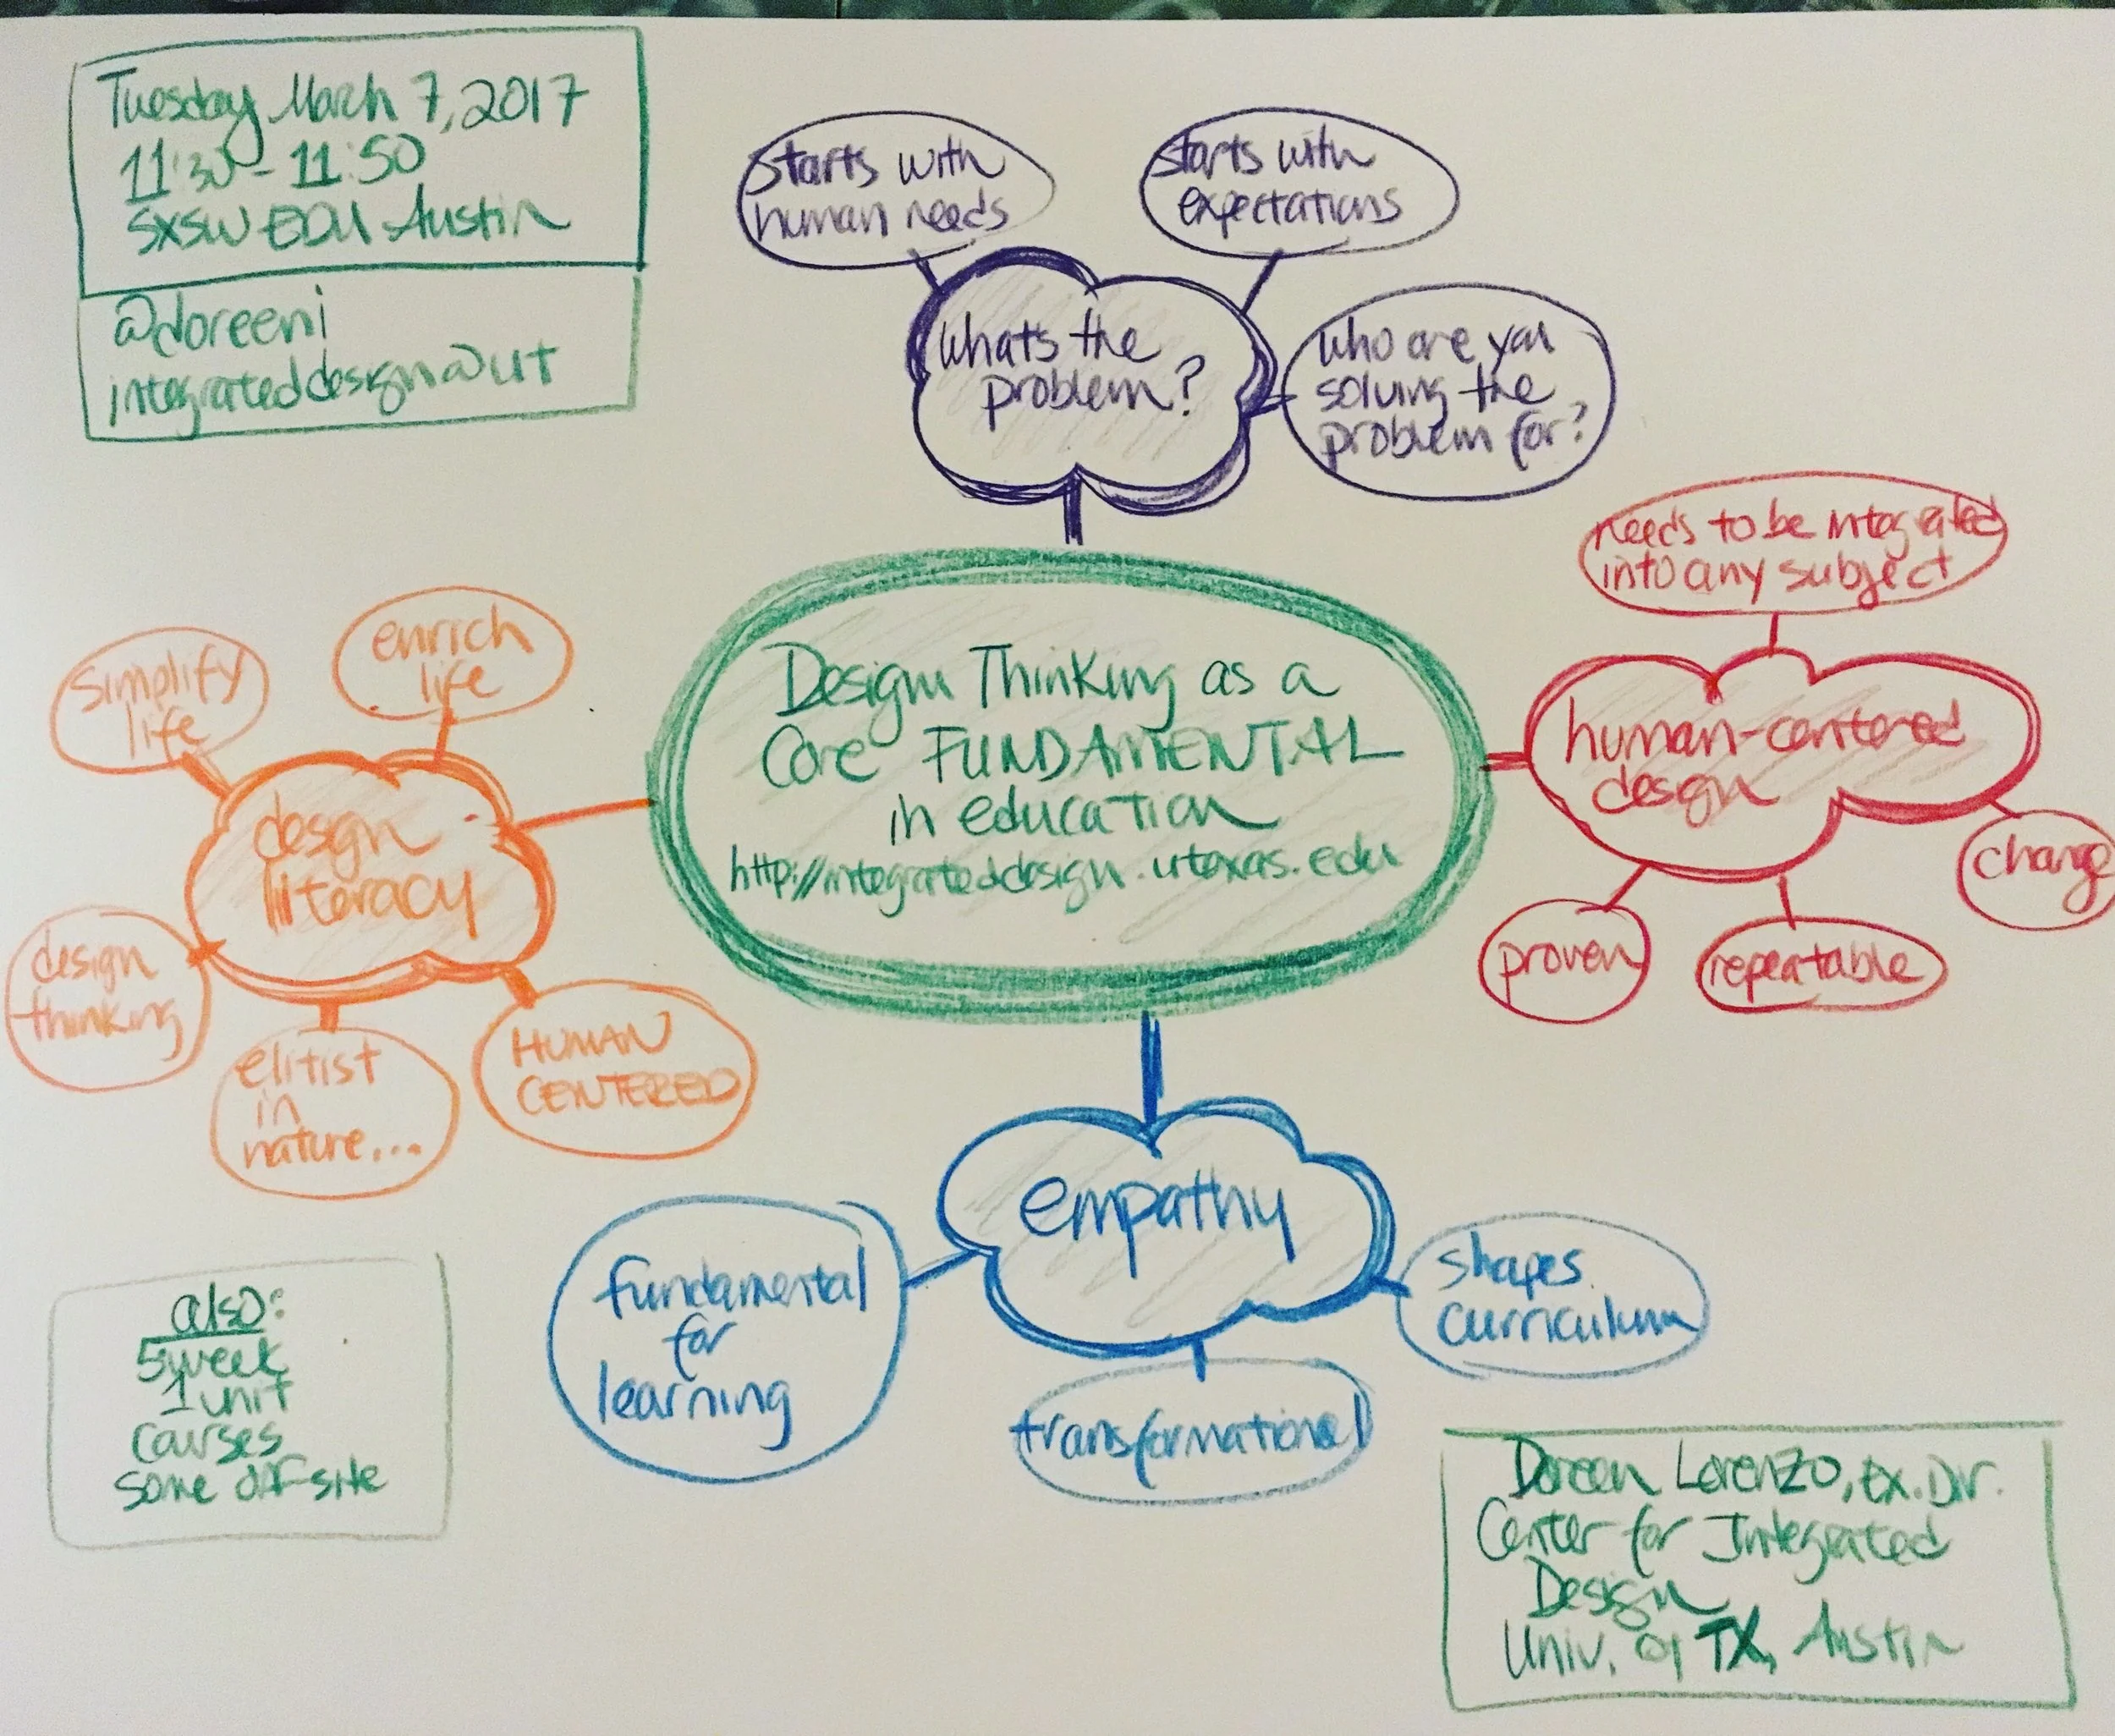 Tuesday March 7, 2017
11:30 - 11:50
SXSW EDU Austin
@doreenl
integrateddesign@UT
starts with
human needs
starts with
expectations
whats the
problem?
who are you
solving the
problem for?
needs to be integrated
into any subject
human-centered
design
change
proven
repeatable
Design Thinking as a
Core FUNDAMENTAL
in education
http://integrateddesign.utexas.edu
simplify
life
enrich
life
design
literacy
design
thinking
elitist
in
nature...
HUMAN
CENTERED
empathy
fundamental
for
learning
transformational
shapes
curriculum
also:
5 week
1 unit
courses
some off-site
Doreen Lorenzo, Ex. Dir.
Center for Integrated
Design
Univ. of TX, Austin